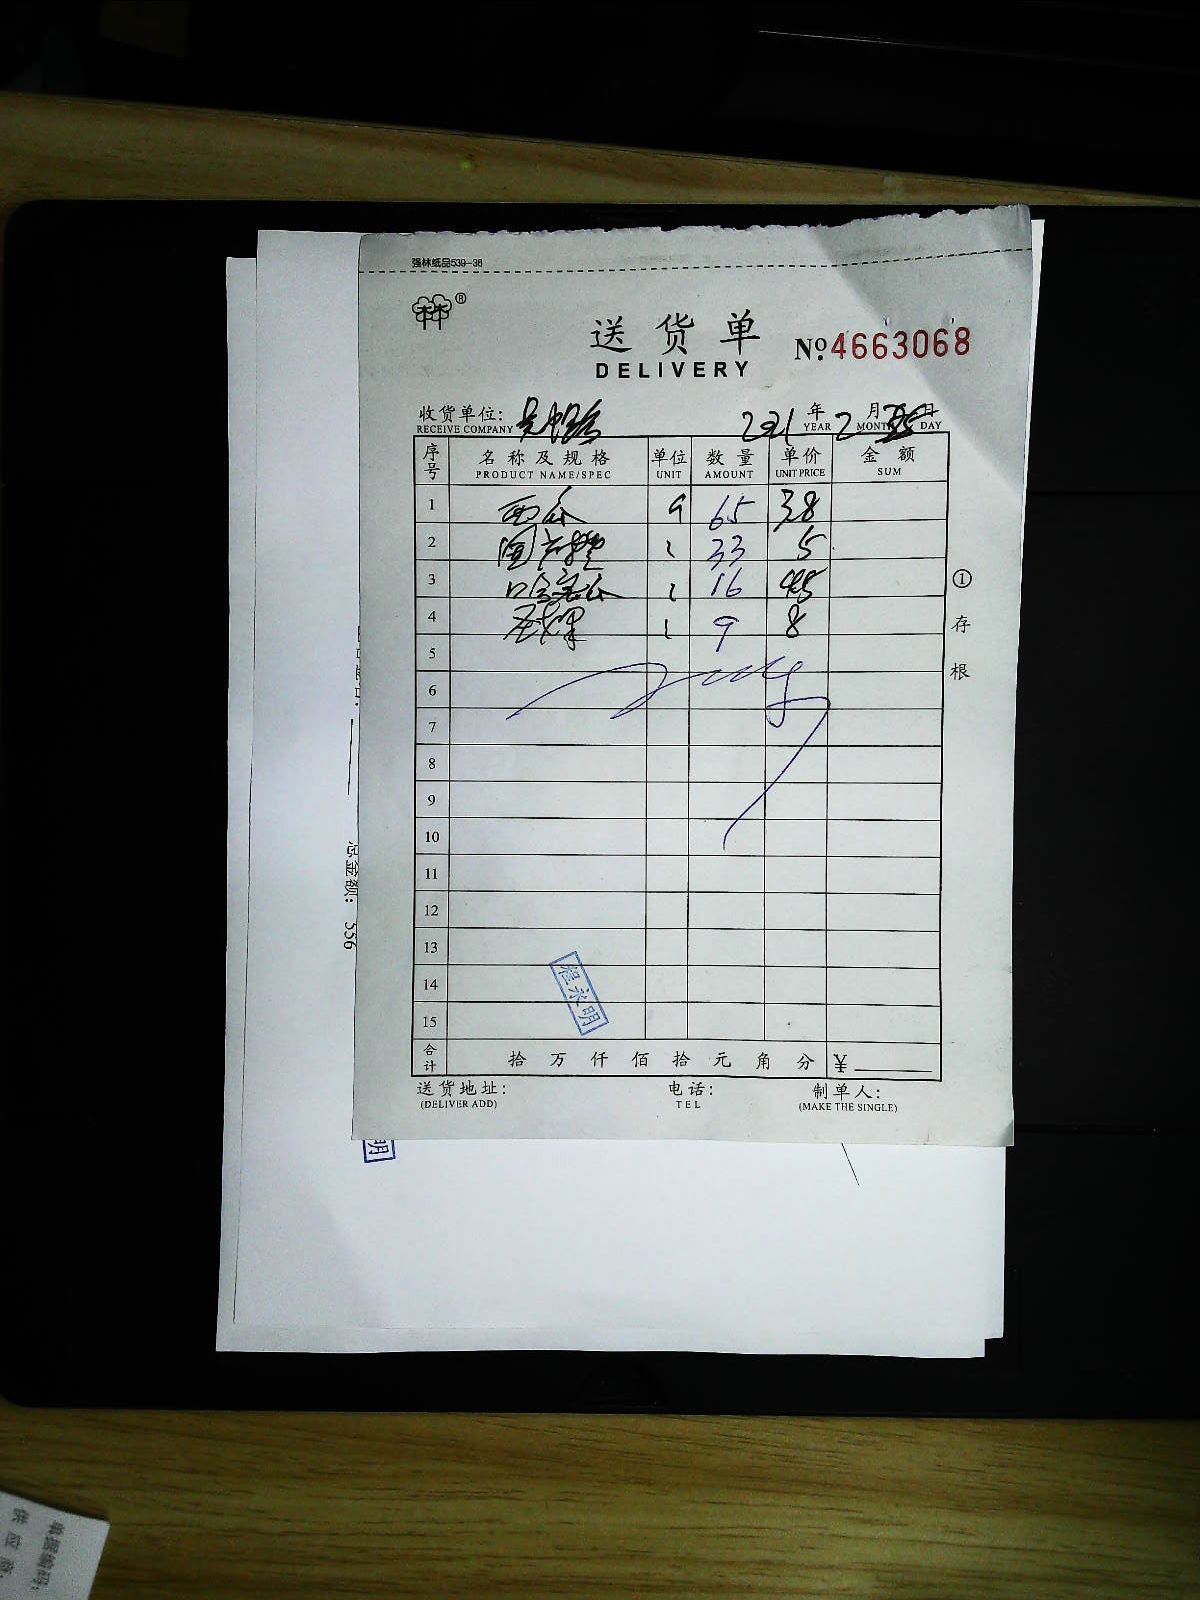 强林纸品539-36
林林®
送货单
DELIVERY
№ 4663068
收货单位:
RECEIVE COMPANY
2021 年 2 月 日
YEAR MONTH DAY
序号 名称及规格 单位 数量 单价 金额
PRODUCT NAME/SPEC UNIT AMOUNT UNIT PRICE SUM
1 西瓜 65 3.8
2 33 5
3 哈密瓜 16 4.5
4 9 8
5
6
7
8
9
10
11
12
13
14
15
程永明
合计 拾 万 仟 佰 拾 元 角 分 ¥
送货地址: 电话: 制单人:
(DELIVER ADD) TEL (MAKE THE SINGLE)
① 存根
总金额: 556
明
单据编码:
供应商: